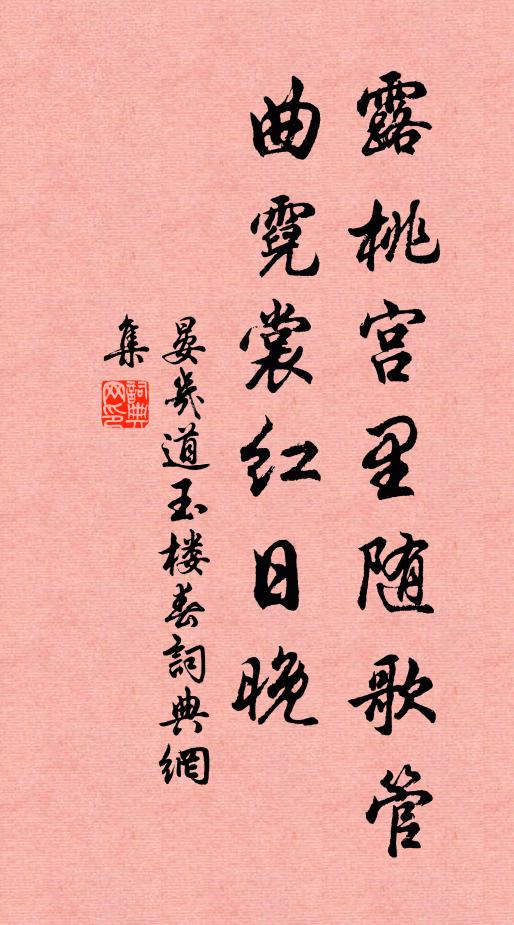 露桃宫里随歌管
曲霓裳红日晚
晏幾道玉楼春詞典網
集
詞典
网印